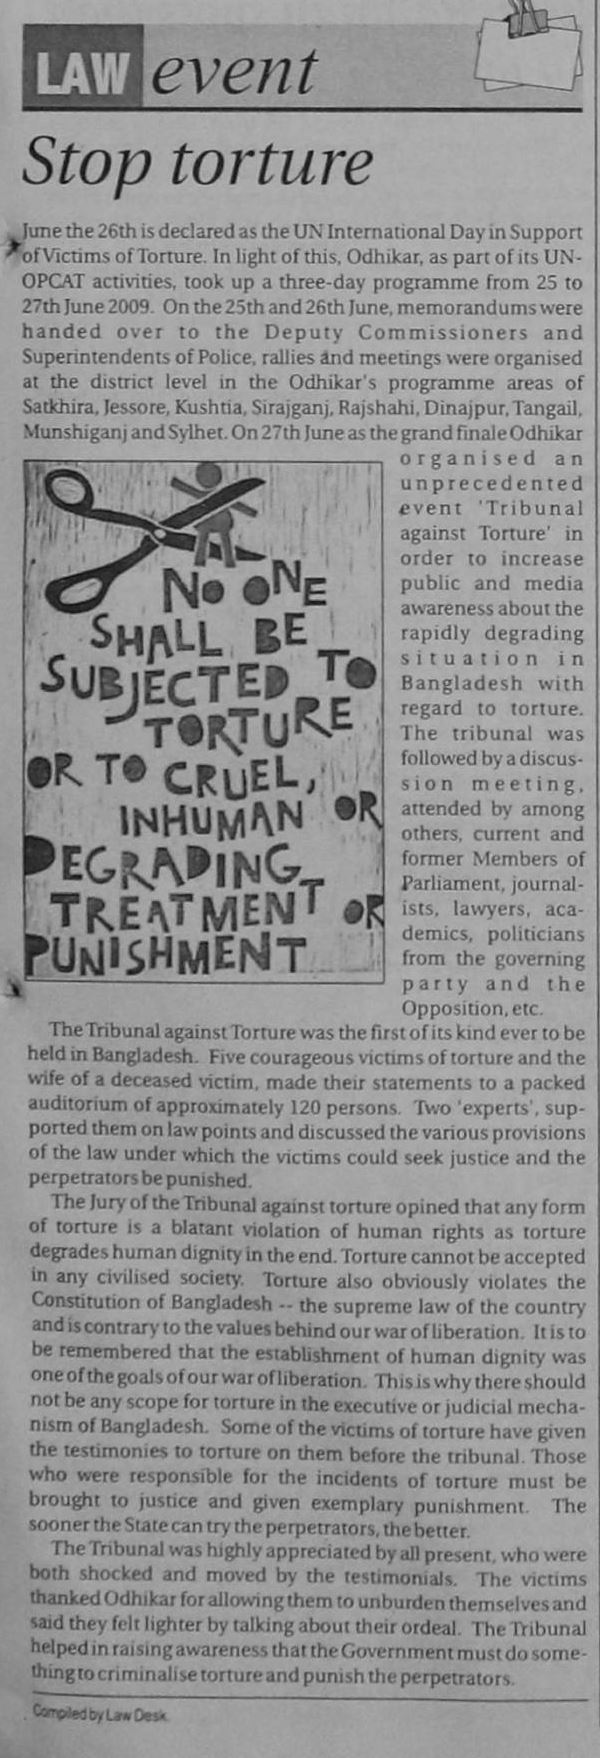 LAW event
Stop torture
June the 26th is declared as the UN International Day in Support
of Victims of Torture. In light of this, Odhikar, as part of its UN-
OPCAT activities, took up a three-day programme from 25 to
27th June 2009. On the 25th and 26th June, memorandums were
handed over to the Deputy Commissioners and
Superintendents of Police, rallies and meetings were organised
at the district level in the Odhikar's programme areas of
Satkhira, Jessore, Kushtia, Sirajganj, Rajshahi, Dinajpur, Tangail,
Munshiganj and Sylhet. On 27th June as the grand finale Odhikar
organised an
unprecedented
event 'Tribunal
against Torture' in
order to increase
public and media
awareness about the
rapidly degrading
situation in
Bangladesh with
regard to torture.
The tribunal was
followed by a discus-
sion meeting,
attended by among
others, current and
former Members of
Parliament, journal-
ists, lawyers, aca-
demics, politicians
from the governing
party and the
Opposition, etc.
NO ONE
SHALL BE
SUBJECTED TO
TORTURE
OR TO CRUEL,
INHUMAN OR
DEGRADING
TREATMENT OR
PUNISHMENT
The Tribunal against Torture was the first of its kind ever to be
held in Bangladesh. Five courageous victims of torture and the
wife of a deceased victim, made their statements to a packed
auditorium of approximately 120 persons. Two 'experts', sup-
ported them on law points and discussed the various provisions
of the law under which the victims could seek justice and the
perpetrators be punished.
The Jury of the Tribunal against torture opined that any form
of torture is a blatant violation of human rights as torture
degrades human dignity in the end. Torture cannot be accepted
in any civilised society. Torture also obviously violates the
Constitution of Bangladesh -- the supreme law of the country
and is contrary to the values behind our war of liberation. It is to
be remembered that the establishment of human dignity was
one of the goals of our war of liberation. This is why there should
not be any scope for torture in the executive or judicial mecha-
nism of Bangladesh. Some of the victims of torture have given
the testimonies to torture on them before the tribunal. Those
who were responsible for the incidents of torture must be
brought to justice and given exemplary punishment. The
sooner the State can try the perpetrators, the better.
The Tribunal was highly appreciated by all present, who were
both shocked and moved by the testimonials. The victims
thanked Odhikar for allowing them to unburden themselves and
said they felt lighter by talking about their ordeal. The Tribunal
helped in raising awareness that the Government must do some-
thing to criminalise torture and punish the perpetrators.
Compiled by Law Desk.